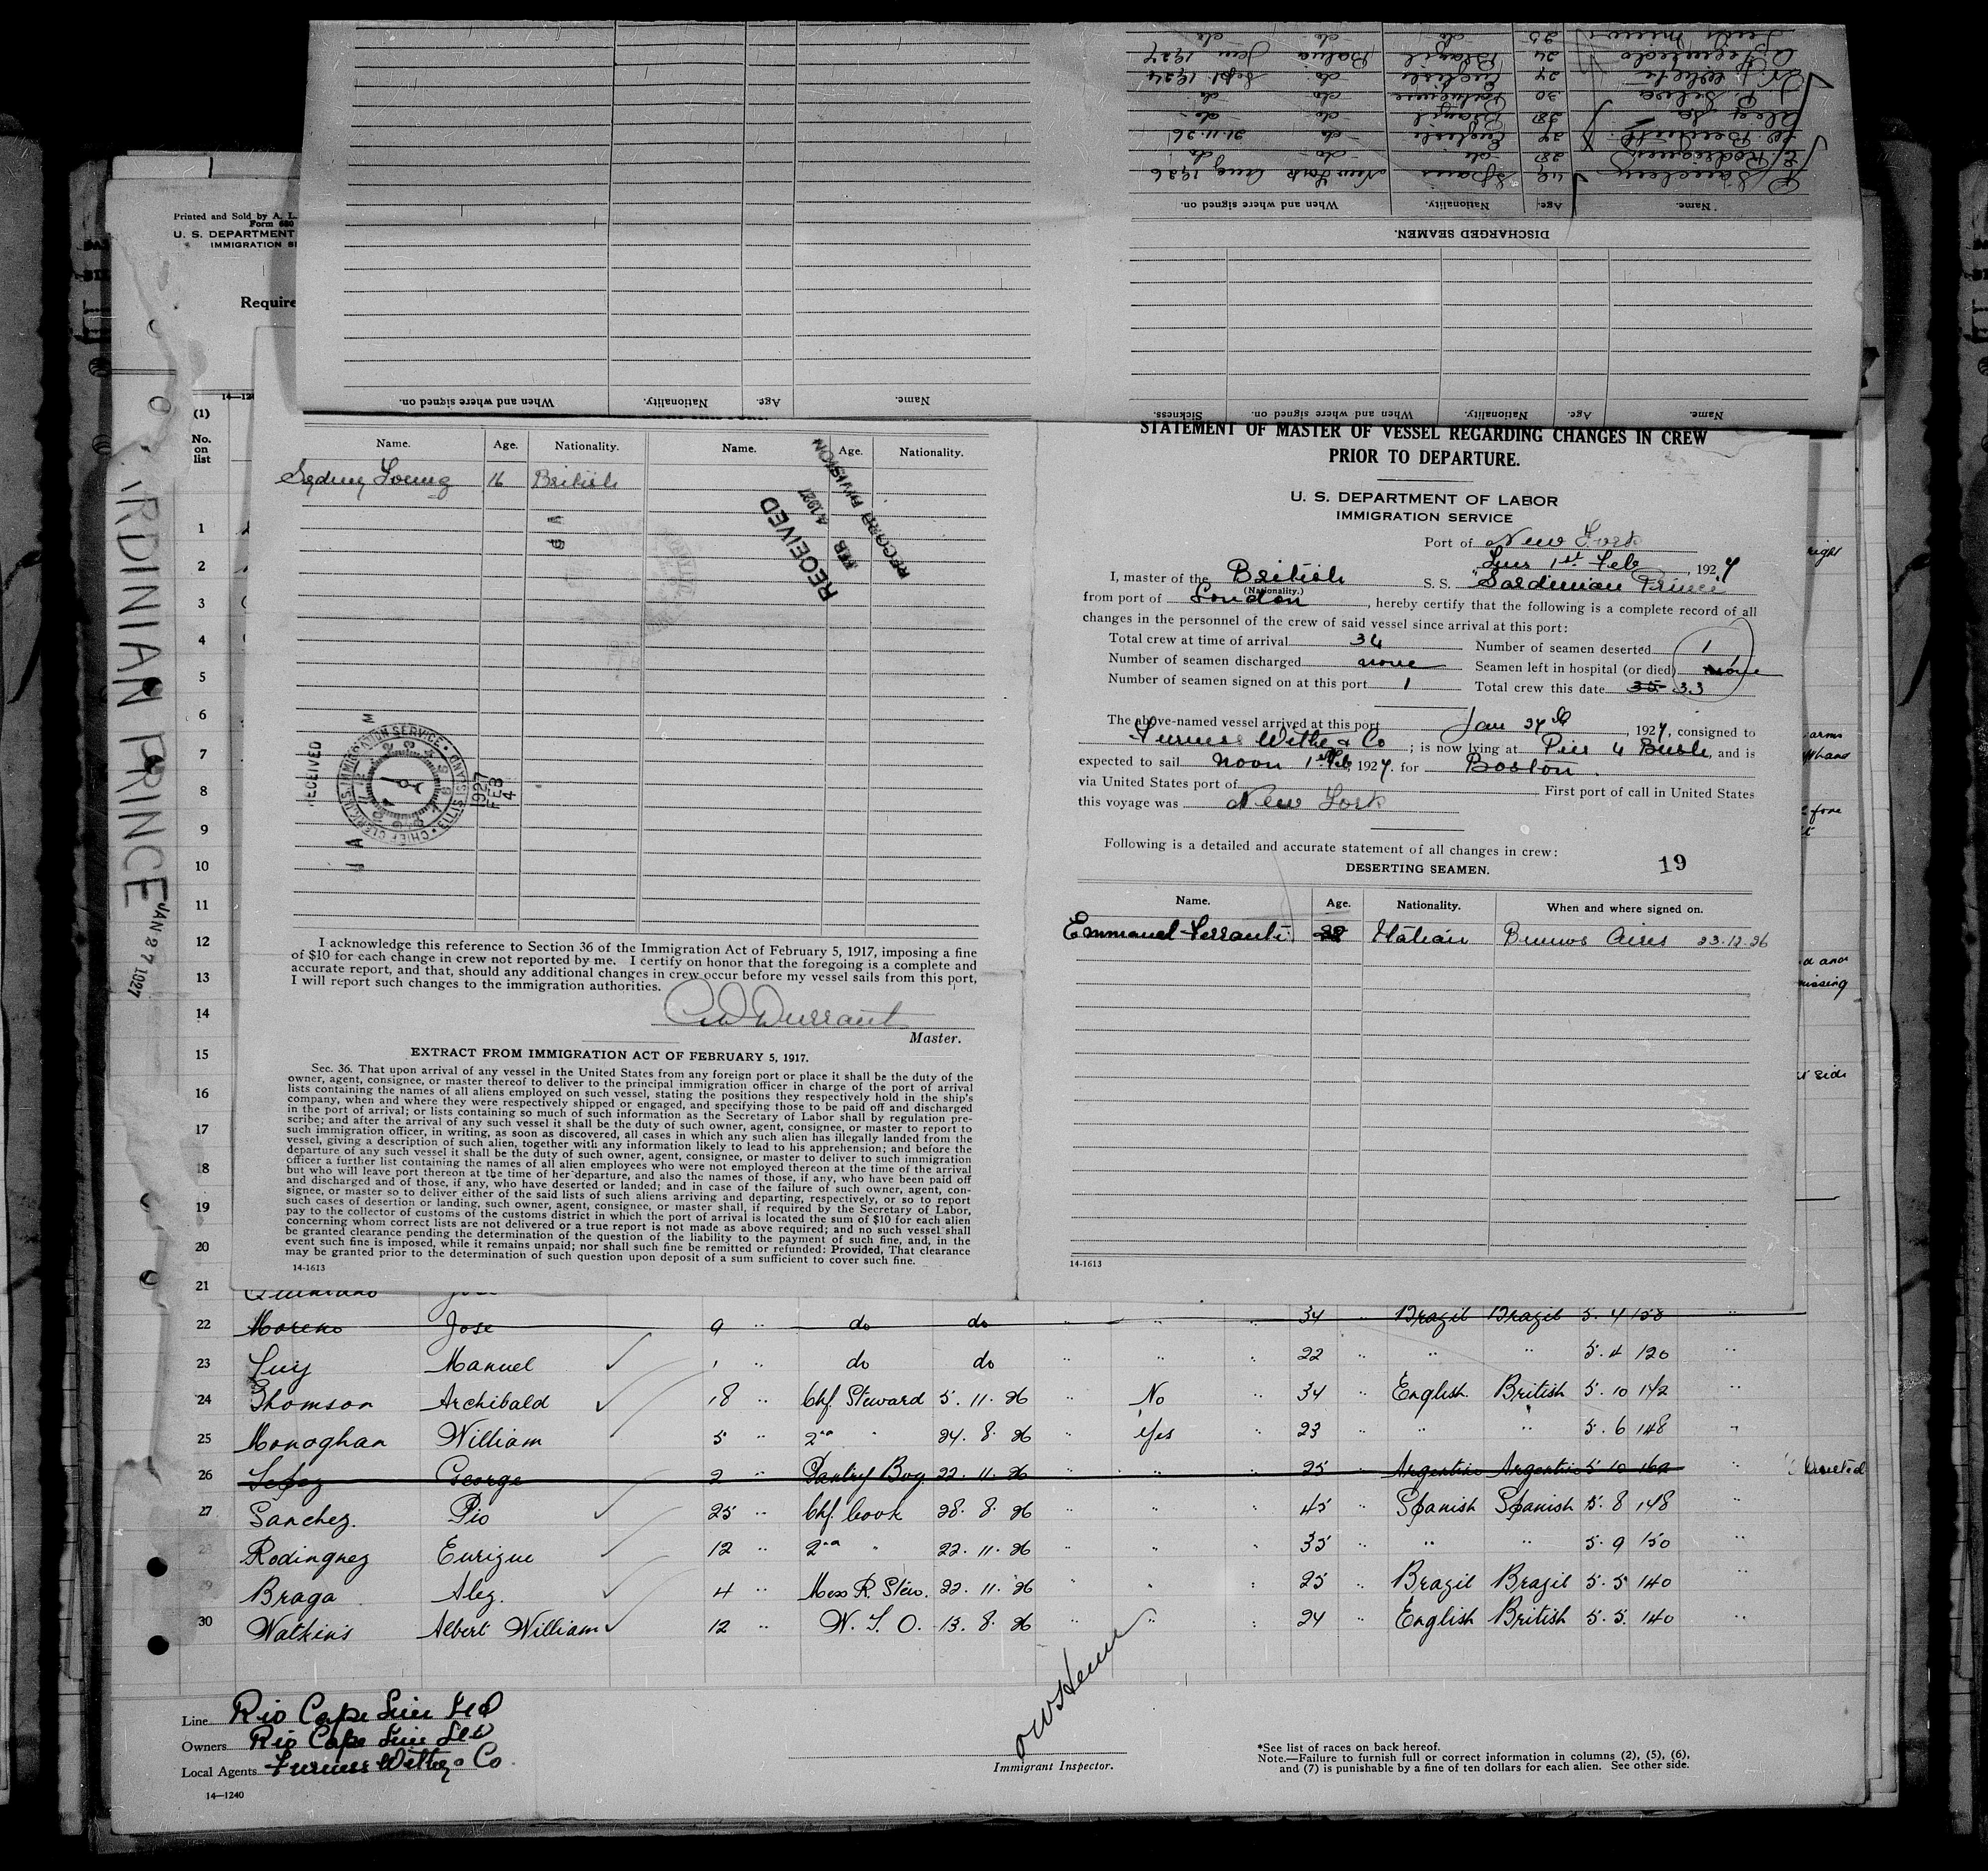 Sickness.
Name. Age. Nationality. When and where signed on.
Name. Age. Nationality. When and where signed on.
DISCHARGED SEAMEN.
Name. Age. Nationality. When and where signed on.
Spain New York Aug 1926
E. Rodriguez 28 do do do
English do 21.11.26
28 Brazil do do
P. Silva 30 do do
24 English do Sept 1924
24 Brazil Bahia Jan 1927
25 do do do
Printed and Sold by A. L.
Form 680
U. S. DEPARTMENT
IMMIGRATION SE
Require
14—124
(1)
No. on list
RDINIAN PRINCE JAN 27 1927
Name. Age. Nationality. Name. Age. Nationality.
Sydney Young 16 British
RECEIVED
FEB 4 1927
RECORD DIVISION
RECEIVED
CHIEF CLERK U.S. IMMIGRATION SERVICE · ELLIS ISLAND
1927 FEB 4
I acknowledge this reference to Section 36 of the Immigration Act of February 5, 1917, imposing a fine
of $10 for each change in crew not reported by me. I certify on honor that the foregoing is a complete and
accurate report, and that, should any additional changes in crew occur before my vessel sails from this port,
I will report such changes to the immigration authorities.
Durrant
Master.
EXTRACT FROM IMMIGRATION ACT OF FEBRUARY 5, 1917.
Sec. 36. That upon arrival of any vessel in the United States from any foreign port or place it shall be the duty of the
owner, agent, consignee, or master thereof to deliver to the principal immigration officer in charge of the port of arrival
lists containing the names of all aliens employed on such vessel, stating the positions they respectively hold in the ship's
company, when and where they were respectively shipped or engaged, and specifying those to be paid off and discharged
in the port of arrival; or lists containing so much of such information as the Secretary of Labor shall by regulation pre-
scribe; and after the arrival of any such vessel it shall be the duty of such owner, agent, consignee, or master to report to
such immigration officer, in writing, as soon as discovered, all cases in which any such alien has illegally landed from the
vessel, giving a description of such alien, together with any information likely to lead to his apprehension; and before the
departure of any such vessel it shall be the duty of such owner, agent, consignee, or master to deliver to such immigration
officer a further list containing the names of all alien employees who were not employed thereon at the time of the arrival
but who will leave port thereon at the time of her departure, and also the names of those, if any, who have been paid off
and discharged and of those, if any, who have deserted or landed; and in case of the failure of such owner, agent, con-
signee, or master so to deliver either of the said lists of such aliens arriving and departing, respectively, or so to report
such cases of desertion or landing, such owner, agent, consignee, or master shall, if required by the Secretary of Labor,
pay to the collector of customs of the customs district in which the port of arrival is located the sum of $10 for each alien
concerning whom correct lists are not delivered or a true report is not made as above required; and no such vessel shall
be granted clearance pending the determination of the question of the liability to the payment of such fine, and, in the
event such fine is imposed, while it remains unpaid; nor shall such fine be remitted or refunded: Provided, That clearance
may be granted prior to the determination of such question upon deposit of a sum sufficient to cover such fine.
14-1613
STATEMENT OF MASTER OF VESSEL REGARDING CHANGES IN CREW
PRIOR TO DEPARTURE.
U. S. DEPARTMENT OF LABOR
IMMIGRATION SERVICE
Port of New York
Tues 1st Feb, 1927
I, master of the British S. S. "Sardinian Prince"
(Nationality.)
from port of London, hereby certify that the following is a complete record of all
changes in the personnel of the crew of said vessel since arrival at this port:
Total crew at time of arrival 34 Number of seamen deserted 1
Number of seamen discharged none Seamen left in hospital (or died) none
Number of seamen signed on at this port 1 Total crew this date 35 33
The above-named vessel arrived at this port Jan 27th 1927, consigned to
Furness Withy & Co; is now lying at Pier 4 Bush, and is
expected to sail noon 1st Feb, 1927. for Boston.
via United States port of First port of call in United States
this voyage was New York
Following is a detailed and accurate statement of all changes in crew:
19
DESERTING SEAMEN.
Name. Age. Nationality. When and where signed on.
Emmanuel Ferranti Italian Buenos Aires 23.12.26
14-1613
1
2
3
4
5
6
7
8
9
10
11
12
13
14
15
16
17
18
19
20
21
22 Moreno Jose 9 " do do " " " 34 " Brazil Brazil 5. 4 158 "
23 Manuel 1 " do do " " " 22 " " " 5. 4 120 "
24 Thomson Archibald 18 " Chf. Steward 5. 11. 26 " No " 34 " English British 5. 10 142 "
25 Monoghan William 5 " 2nd " 24. 8. 26 " Yes " 23 " " " 5. 6 148 "
26 George 2 Pantry Boy 22. 11. 26 " " " 25 " Argentine Argentine 5 10 162 " Deserted
27 Sanchez. Pio 25 " Chf. Cook 28. 8. 26 " " " 45 " Spanish Spanish 5. 8 148 "
28 Rodinguez Eurigue 12 " 2nd " 22. 11. 26 " " " 35 " " " 5. 9 150 "
29 Braga Alez. 4 " Mess R. Stew. 22. 11. 26 " " " 25 " Brazil Brazil 5. 5 140 "
30 Watkins Albert William 12 " W. T. O. 13. 8. 26 " " " 24 " English British 5. 5. 140 "
Line Rio Cape Line Ltd
Owners Rio Cape Line Ltd
Local Agents Furness Withy & Co.
14—1240
Immigrant Inspector.
*See list of races on back hereof.
Note.—Failure to furnish full or correct information in columns (2), (5), (6),
and (7) is punishable by a fine of ten dollars for each alien. See other side.